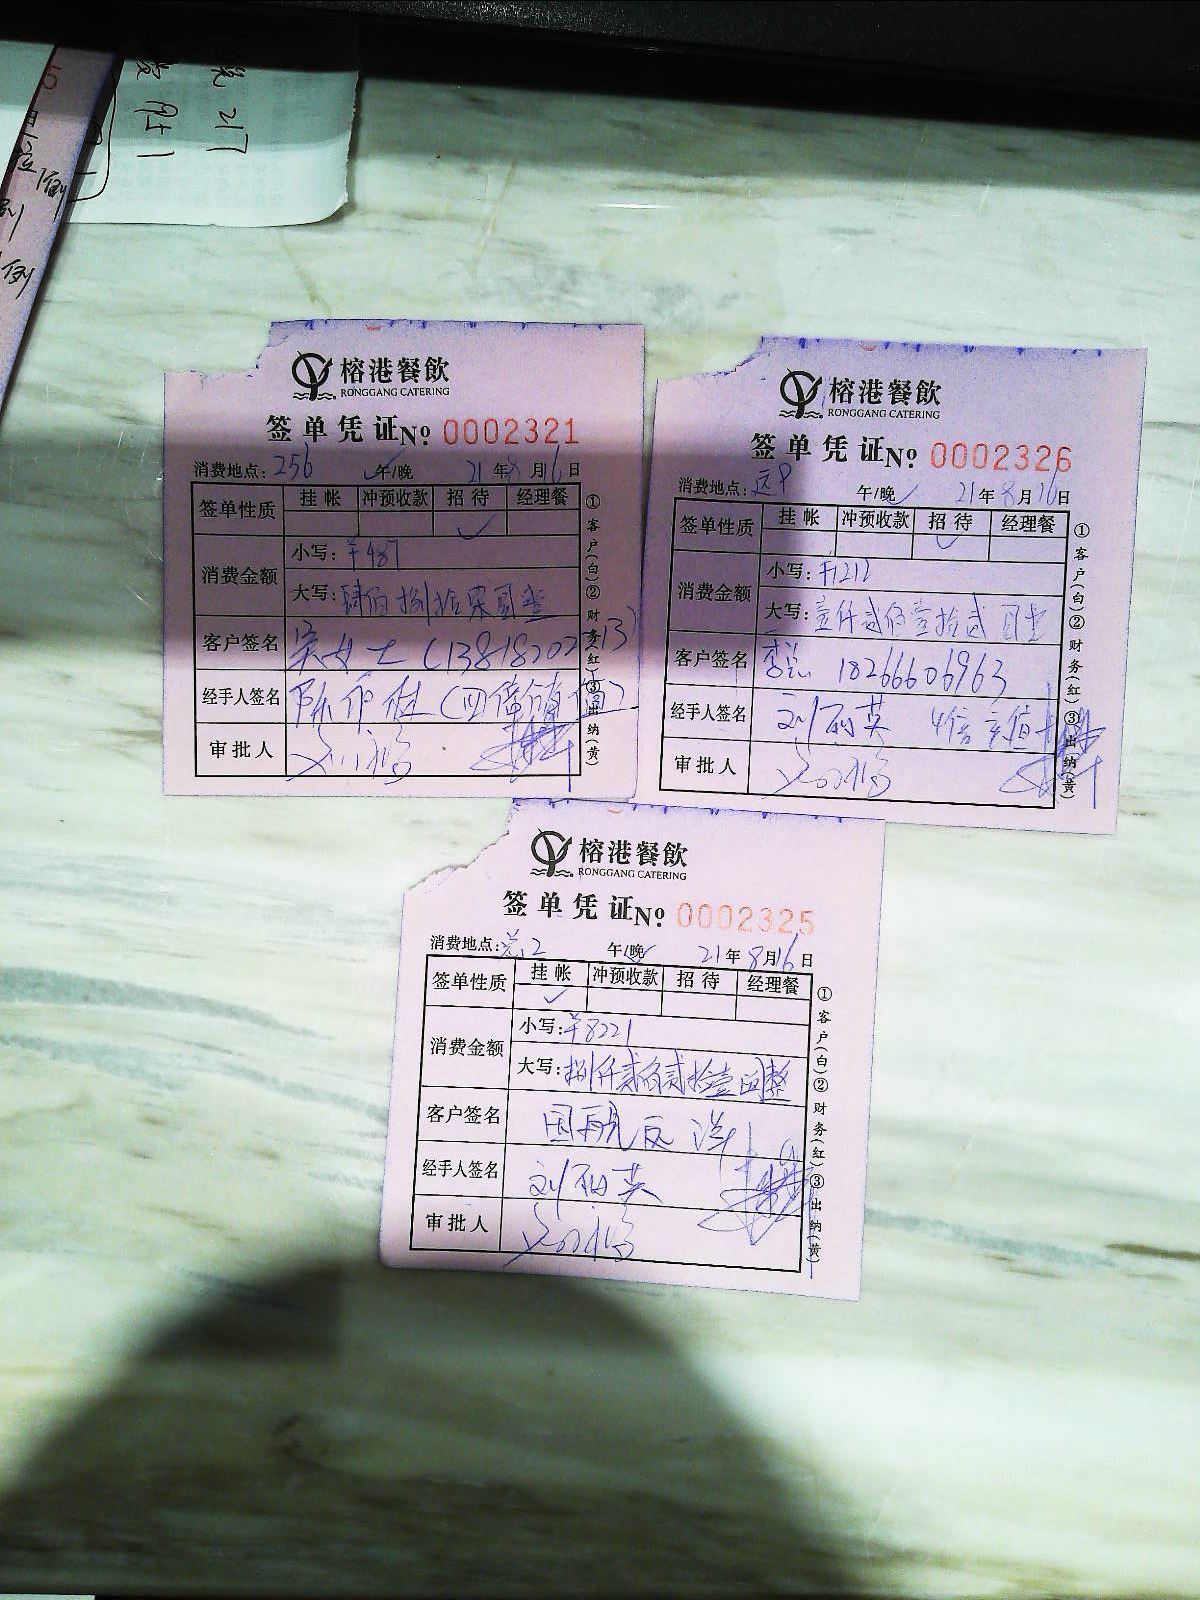 榕港餐飲
RONGGANG CATERING
签单凭证 No 0002321
消费地点：256 午/晚 21年8月16日
签单性质 挂帐 冲预收款 招待 经理餐
✓
消费金额
小写：¥487
大写：肆佰捌拾柒圆整
客户签名 吴女士
经手人签名
审批人
①客户(白)②财务(红)③出纳(黄)
榕港餐飲
RONGGANG CATERING
签单凭证 No 0002326
消费地点： 午/晚✓ 21年8月16日
签单性质 挂帐 冲预收款 招待 经理餐
✓
消费金额
小写：¥1212
大写：壹仟贰佰壹拾贰圆整
客户签名 18266606963
经手人签名 刘丽英 4倍充值卡
审批人
①客户(白)②财务(红)③出纳(黄)
榕港餐飲
RONGGANG CATERING
签单凭证 No 0002325
消费地点： 午/晚✓ 21年8月16日
签单性质 挂帐 冲预收款 招待 经理餐
✓
消费金额
小写：¥8221
大写：捌仟贰佰贰拾壹圆整
客户签名
经手人签名 刘丽英
审批人
①客户(白)②财务(红)③出纳(黄)